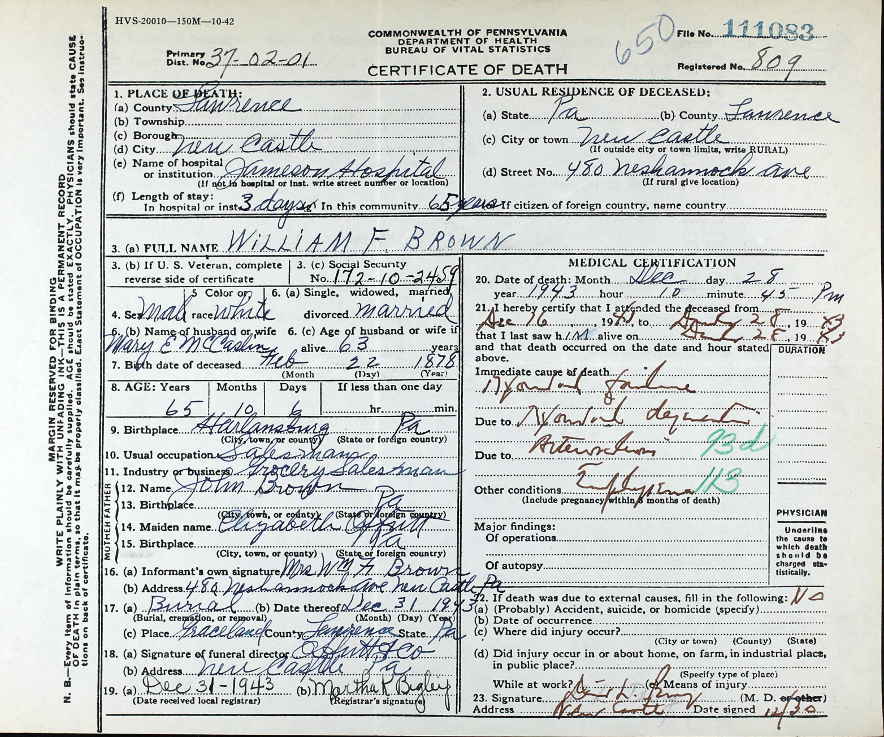 HVS-20010—150M—10-42
COMMONWEALTH OF PENNSYLVANIA
DEPARTMENT OF HEALTH
BUREAU OF VITAL STATISTICS
CERTIFICATE OF DEATH
650
File No. 111083
Primary Dist. No. 37-02-01
Registered No. 809
MARGIN RESERVED FOR BINDING
WRITE PLAINLY WITH UNFADING INK—THIS IS A PERMANENT RECORD
N. B.—Every item of information should be carefully supplied. AGE should be stated EXACTLY. PHYSICIANS should state CAUSE
OF DEATH in plain terms, so that it may be properly classified. Exact Statement of OCCUPATION is very important. See instruc-
tions on back of certificate.
1. PLACE OF DEATH:
(a) County Lawrence
(b) Township
(c) Borough
(d) City New Castle
(e) Name of hospital
or institution Jameson Hospital
(If not in hospital or inst. write street number or location)
(f) Length of stay:
In hospital or inst. 3 days In this community 65 years If citizen of foreign country, name country
2. USUAL RESIDENCE OF DECEASED:
(a) State Pa (b) County Lawrence
(c) City or town New Castle
(If outside city or town limits, write RURAL)
(d) Street No. 480 Neshannock Ave
(If rural give location)
3. (a) FULL NAME WILLIAM F. BROWN
3. (b) If U. S. Veteran, complete
reverse side of certificate
3. (c) Social Security
No. 172-10-2459
4. Sex Male 5 Color or race White 6. (a) Single, widowed, married, divorced married
6. (b) Name of husband or wife Mary E McCaslin 6. (c) Age of husband or wife if alive 63 years
7. Birth date of deceased Feb 22 1878
(Month) (Day) (Year)
8. AGE: Years Months Days If less than one day
65 10 6 hr. min.
9. Birthplace Harlansburg Pa
(City, town, or county) (State or foreign country)
10. Usual occupation Salesman
11. Industry or business Grocery Salesman
FATHER
12. Name John Brown
13. Birthplace Pa
(City, town, or county) (State or foreign country)
MOTHER
14. Maiden name Elizabeth Offutt
15. Birthplace Pa
(City, town, or county) (State or foreign country)
16. (a) Informant's own signature Mrs Wm F. Brown
(b) Address 480 Neshannock Ave New Castle, Pa
17. (a) Burial (b) Date thereof Dec 31 1943
(Burial, cremation, or removal) (Month) (Day) (Year)
(c) Place Graceland County Lawrence State Pa
18. (a) Signature of funeral director Offutt & Co
(b) Address New Castle Pa
19. (a) Dec 31-1943 (b) Martha R Begley
(Date received local registrar) (Registrar's signature)
MEDICAL CERTIFICATION
20. Date of death: Month Dec day 28
year 1943 hour 10 minute 45 Pm
21. I hereby certify that I attended the deceased from
Dec 16, 19 to 28, 1943
that I last saw him alive on 28, 1943
and that death occurred on the date and hour stated
above.
DURATION
Immediate cause of death
Myocardial failure
Due to Myocardial
Due to 93d
Other conditions Emphysema 113
(Include pregnancy within 3 months of death)
PHYSICIAN
Underline
the cause to
which death
should be
charged sta-
tistically.
Major findings:
Of operations
Of autopsy
22. If death was due to external causes, fill in the following: NO
(a) (Probably) Accident, suicide, or homicide (specify)
(b) Date of occurrence
(c) Where did injury occur?
(City or town) (County) (State)
(d) Did injury occur in or about home, on farm, in industrial place,
in public place?
(Specify type of place)
While at work? (e) Means of injury
23. Signature (M. D. or other)
Address New Castle Date signed 12/30